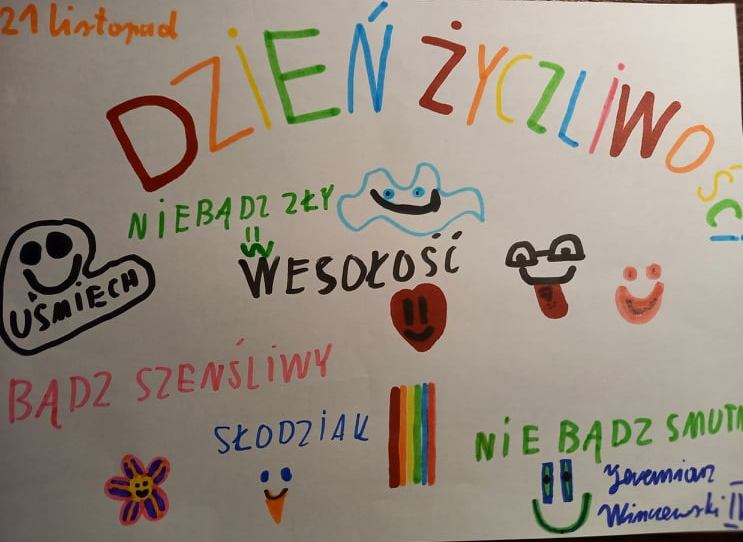 21 listopad
DZIEŃ ŻYCZLIWOŚCI
NIEBĄDZ ZŁY
UŚMIECH
WESOŁOŚĆ
BĄDZ SZENŚLIWY
SŁODZIAK
NIE BĄDZ SMUTN
Jeremiasz